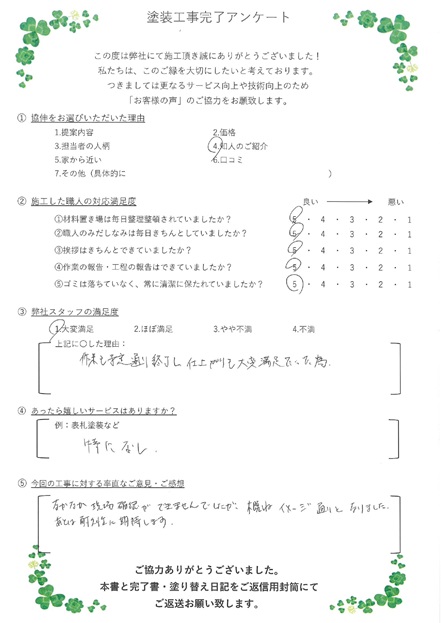 塗装工事完了アンケート
この度は弊社にて施工頂き誠にありがとうございました！
私たちは、このご縁を大切にしたいと考えております。
つきましては更なるサービス向上や技術向上のため
「お客様の声」のご協力をお願致します。
① 協伸をお選びいただいた理由
1.提案内容 2.価格
3.担当者の人柄 4.知人のご紹介
5.家から近い 6.口コミ
7.その他（具体的に ）
② 施工した職人の対応満足度 良い 悪い
①材料置き場は毎日整理整頓されていましたか? 5・4・3・2・1
②職人のみだしなみは毎日きちんとしていましたか? 5・4・3・2・1
③挨拶はきちんとできていましたか? 5・4・3・2・1
④作業の報告・工程の報告はできていましたか? 5・4・3・2・1
⑤ゴミは落ちていなく、常に清潔に保たれていましたか? 5・4・3・2・1
③ 弊社スタッフの満足度
1.大変満足 2.ほぼ満足 3.やや不満 4.不満
上記に○した理由：
作業も予定通り終了し 仕上がりも大変満足だった為.
④ あったら嬉しいサービスはありますか?
例：表札塗装など
特になし.
⑤ 今回の工事に対する率直なご意見・ご感想
なかなか現場確認ができませんでしたが、概ねイメージ通りとなりました.
あとは耐久性に期待します.
ご協力ありがとうございました。
本書と完了書・塗り替え日記をご返信用封筒にて
ご返送お願い致します。